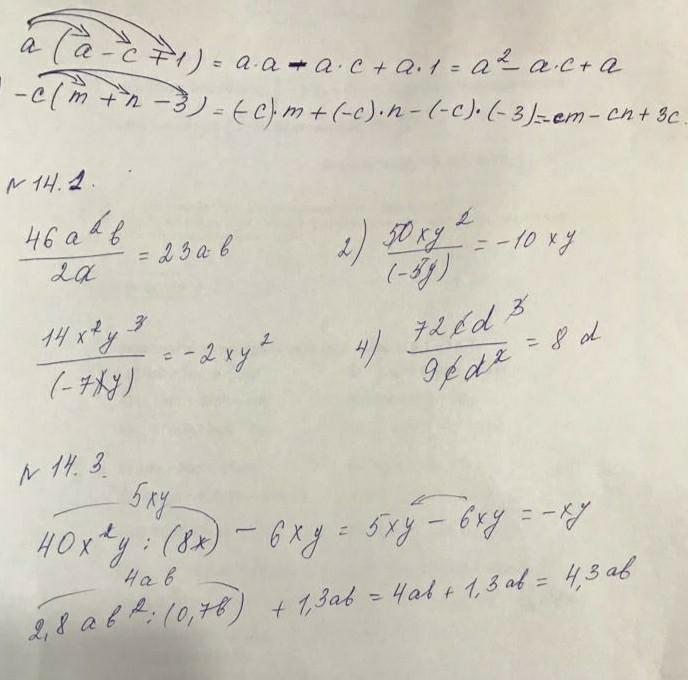 a (a - c + 1) = a·a - a·c + a·1 = a² - a·c + a
-c(m + n - 3) = (-c)·m + (-c)·n - (-c)·(-3) = -cm - cn + 3c.
№ 14.2.
46a²b / 2a = 23ab
2) 50xy² / (-5y) = -10xy
14x²y³ / (-7xy) = -2xy²
4) 72cd³ / 9cd² = 8d
№ 14.3.
5xy
40x²y : (8x) - 6xy = 5xy - 6xy = -xy
4ab
2,8ab² : (0,7b) + 1,3ab = 4ab + 1,3ab = 4,3ab